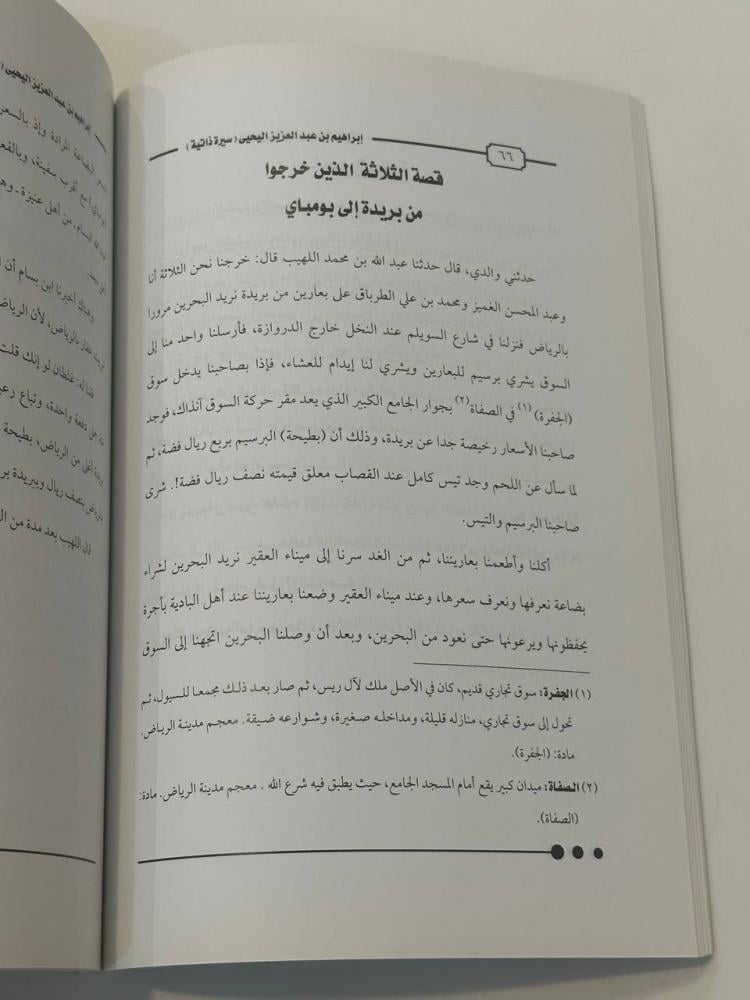 ٦٦
إبراهيم بن عبد العزيز اليحيى (سيرة ذاتية)
قصة الثلاثة الذين خرجوا
من بريدة إلى بومباي
حدثني والدي، قال حدثنا عبد الله بن محمد اللهيب قال: خرجنا نحن الثلاثة أنا
وعبد المحسن الغميز ومحمد بن علي الطرباق على بعارين من بريدة نريد البحرين مرورا
بالرياض فنزلنا في شارع السويلم عند النخل خارج الدروازة، فأرسلنا واحد منا إلى
السوق يشري برسيم للبعارين ويشري لنا إيدام للعشاء، فإذا بصاحبنا يدخل سوق
(الجفرة)(١) في الصفاة(٢) بجوار الجامع الكبير الذي يعد مقر حركة السوق آنذاك، فوجد
صاحبنا الأسعار رخيصة جدا عن بريدة، وذلك أن (بطيحة) البرسيم بربع ريال فضة، ثم
لما سأل عن اللحم وجد تيس كامل عند القصاب معلق قيمته نصف ريال فضة!. شرى
صاحبنا البرسيم والتيس.
أكلنا وأطعمنا بعاريننا، ثم من الغد سرنا إلى ميناء العقير نريد البحرين لشراء
بضاعة نعرفها ونعرف سعرها، وعند ميناء العقير وضعنا بعاريننا عند أهل البادية بأجرة
يحفظونها ويرعونها حتى نعود من البحرين، وبعد أن وصلنا البحرين اتجهنا إلى السوق
(١) الجفرة: سوق تجاري قديم، كان في الأصل ملك لآل ريس، ثم صار بعد ذلك مجمعا للسيول، ثم
تحول إلى سوق تجاري، منازله قليلة، ومداخله صغيرة، وشوارعه ضيقة. معجم مدينة الرياض.
مادة: (الجفرة).
(٢) الصفاة: ميدان كبير يقع أمام المسجد الجامع، حيث يطبق فيه شرع الله. معجم مدينة الرياض. مادة:
(الصفاة).
إبراهيم بن عبد العزيز اليحيى (
البضاعة المرادة وإذ بالسعر
مع أقرب سفينة، وبالفعل
البسام ـ من أهل عنيزة ـ وهـ
وهناك أخبرنا ابن بسام أن
عقار بالرياض، لأن الرياض
قلنا له: غلطان لو إنك قلت
دفعة واحدة، وتباع
أغلى من الرياض، بطيحة
بنصف ريال وببريدة بر
قال اللهيب بعد مدة من